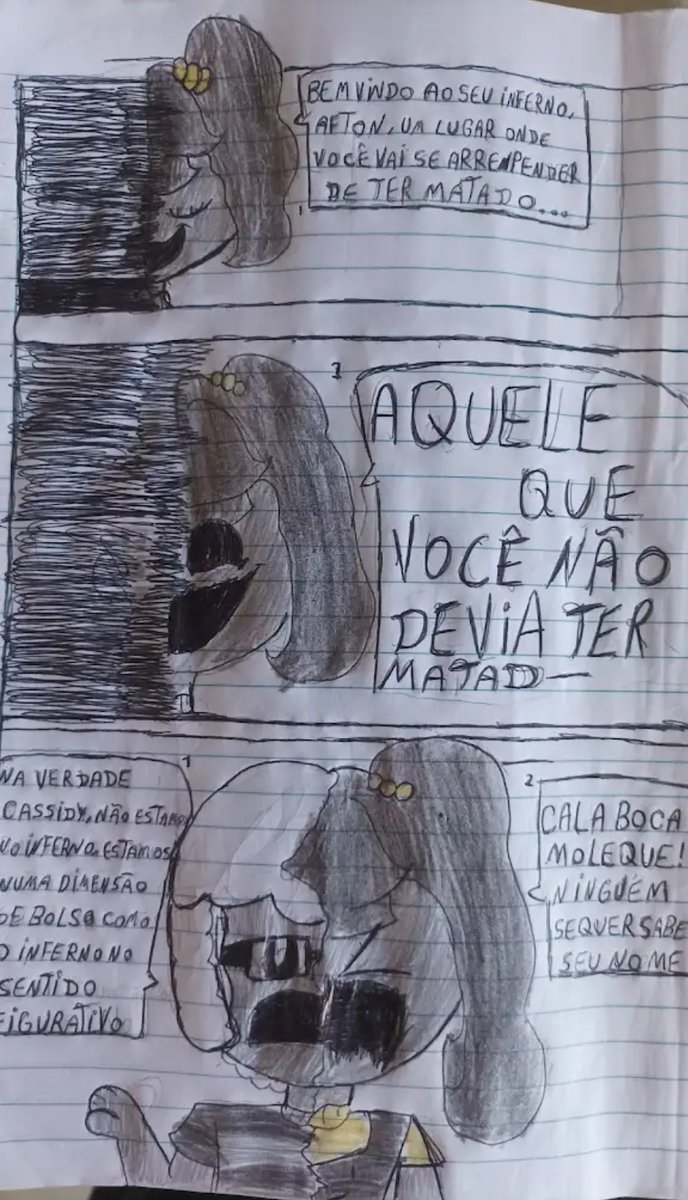 BEM VINDO AO SEU INFERNO,
AFTON, UM LUGAR ONDE
VOCÊ VAI SE ARRENPENDER
DE TER MATADO...
1
3
AQUELE
QUE
VOCÊ NÃO
DEVIA TER
MATADO—
1
NA VERDADE
CASSIDY, NÃO ESTAMOS
NO INFERNO, ESTAMOS
NUMA DIMENSÃO
DE BOLSO COMO
O INFERNO NO
SENTIDO
FIGURATIVO
2
CALA BOCA
MOLEQUE!
NINGUÉM
SEQUER SABE
SEU NOME